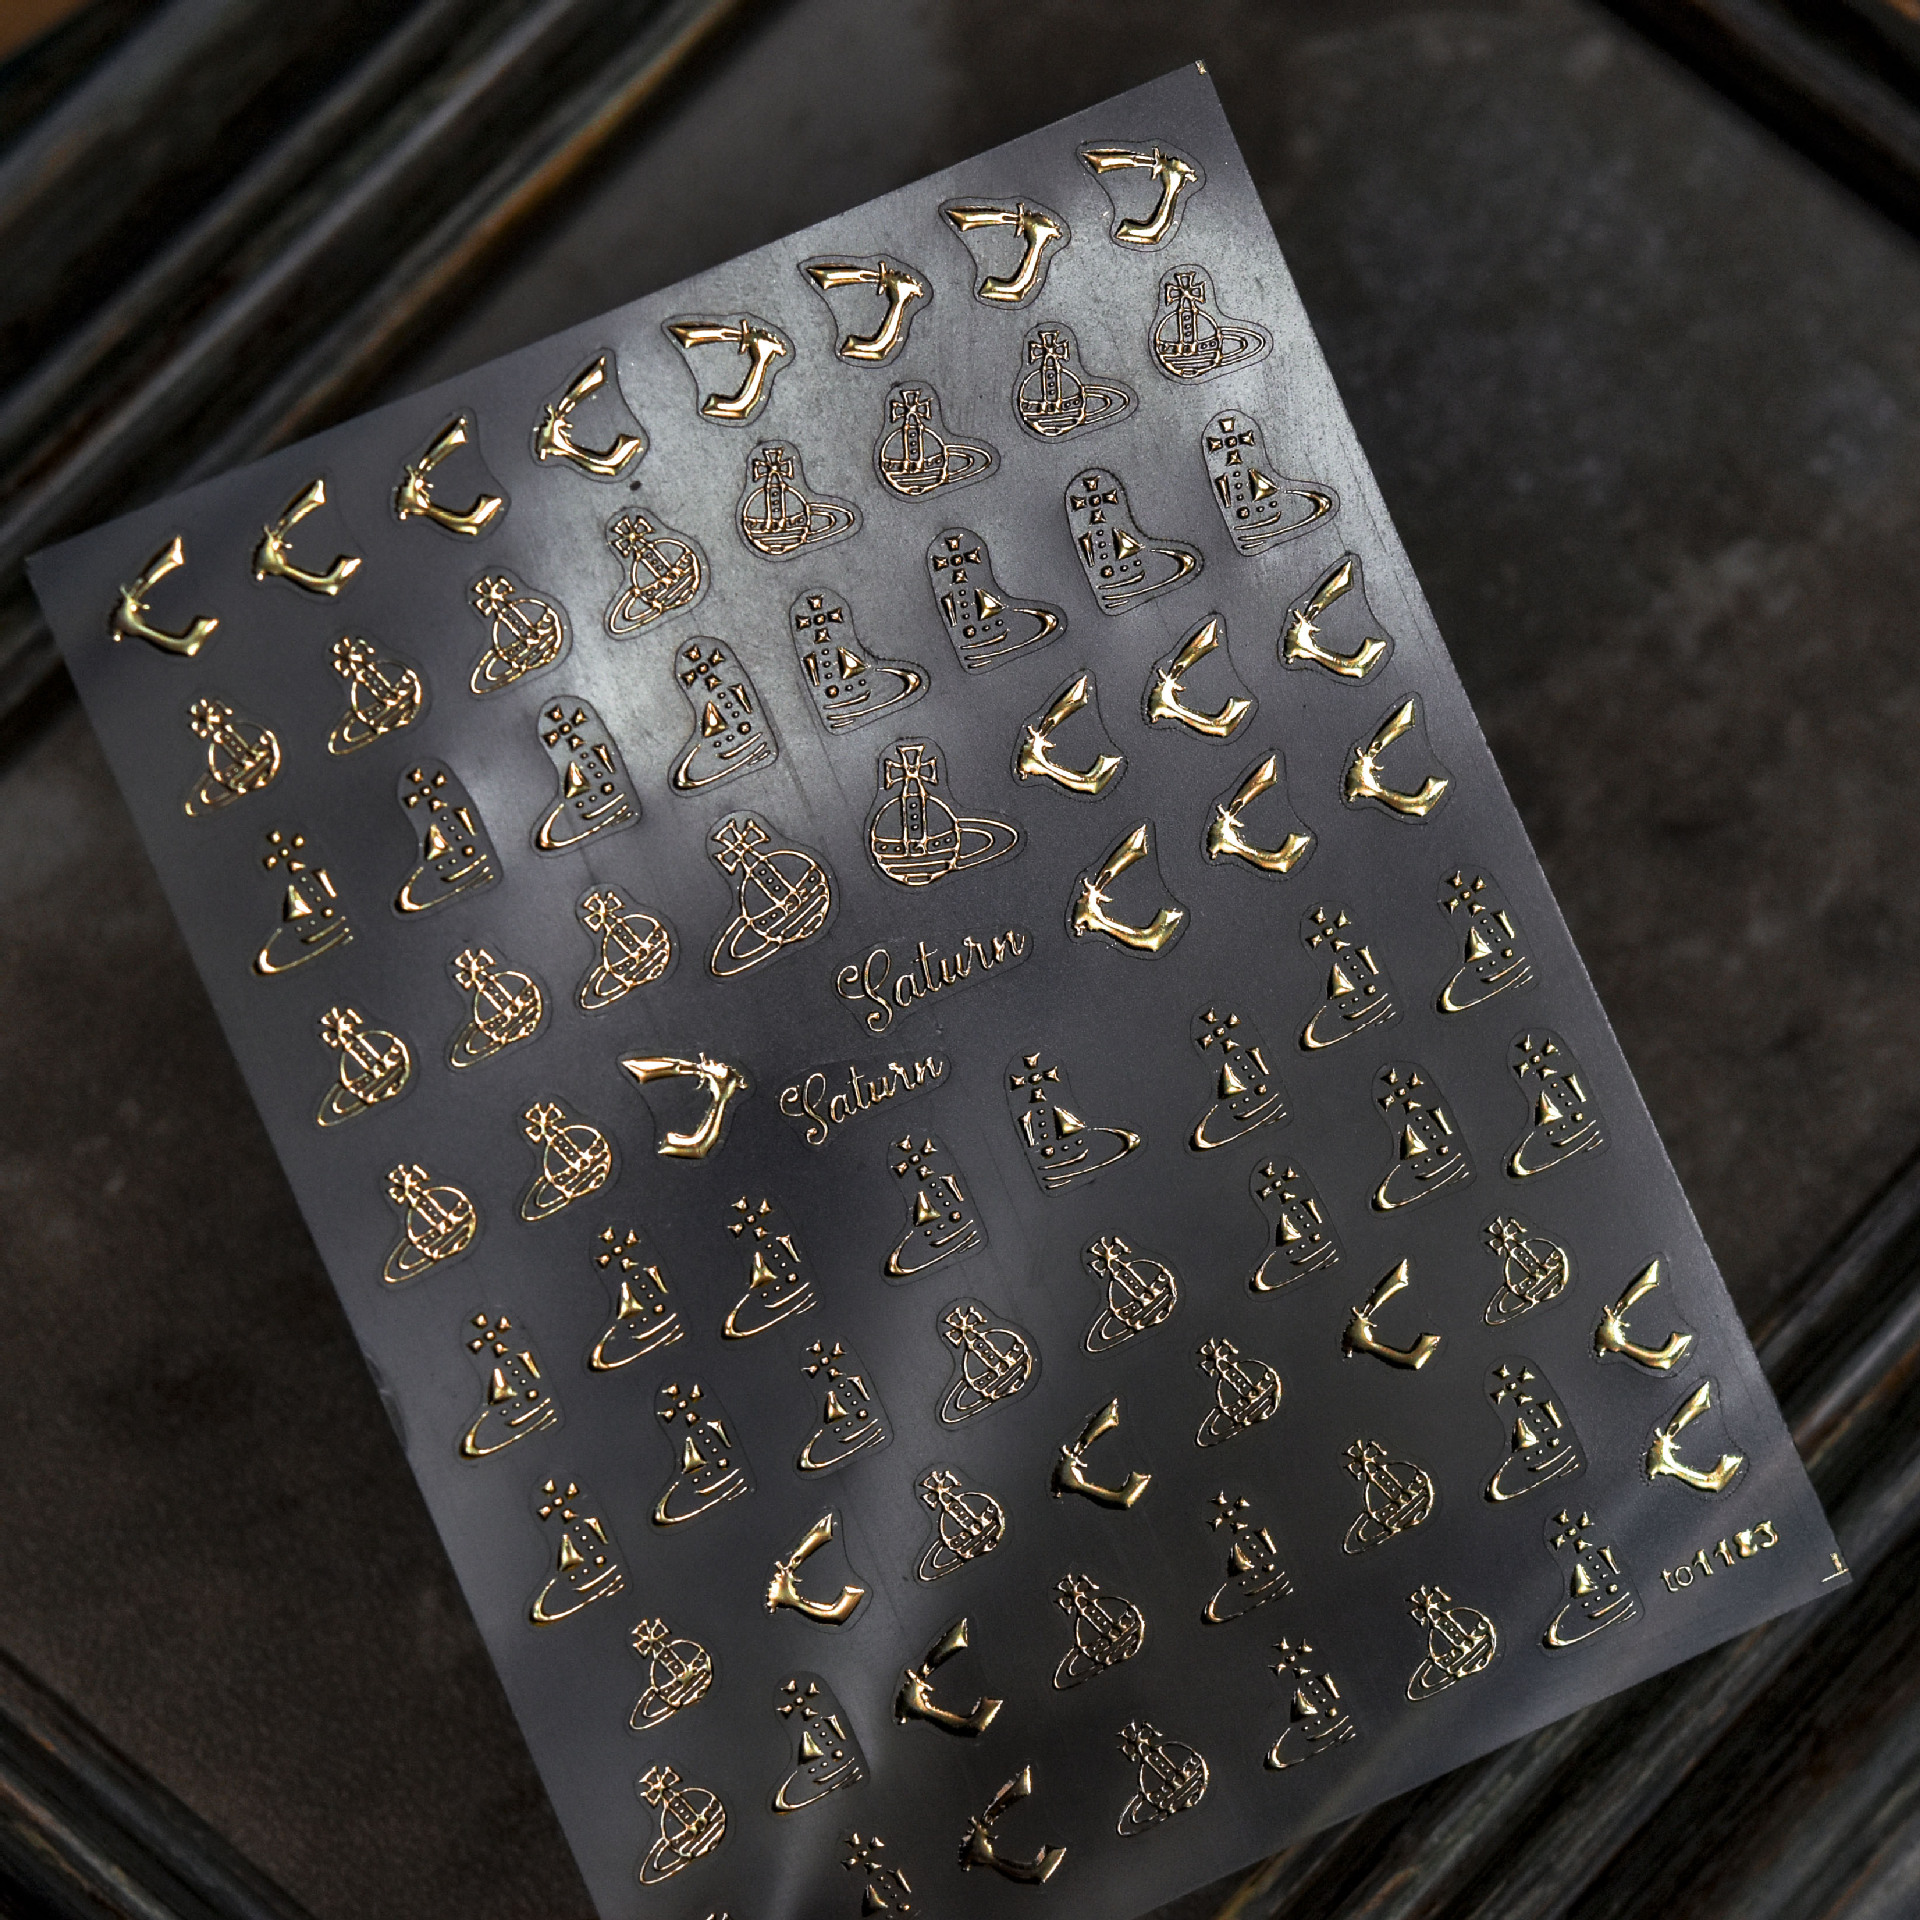 Saturn
Saturn
to1183